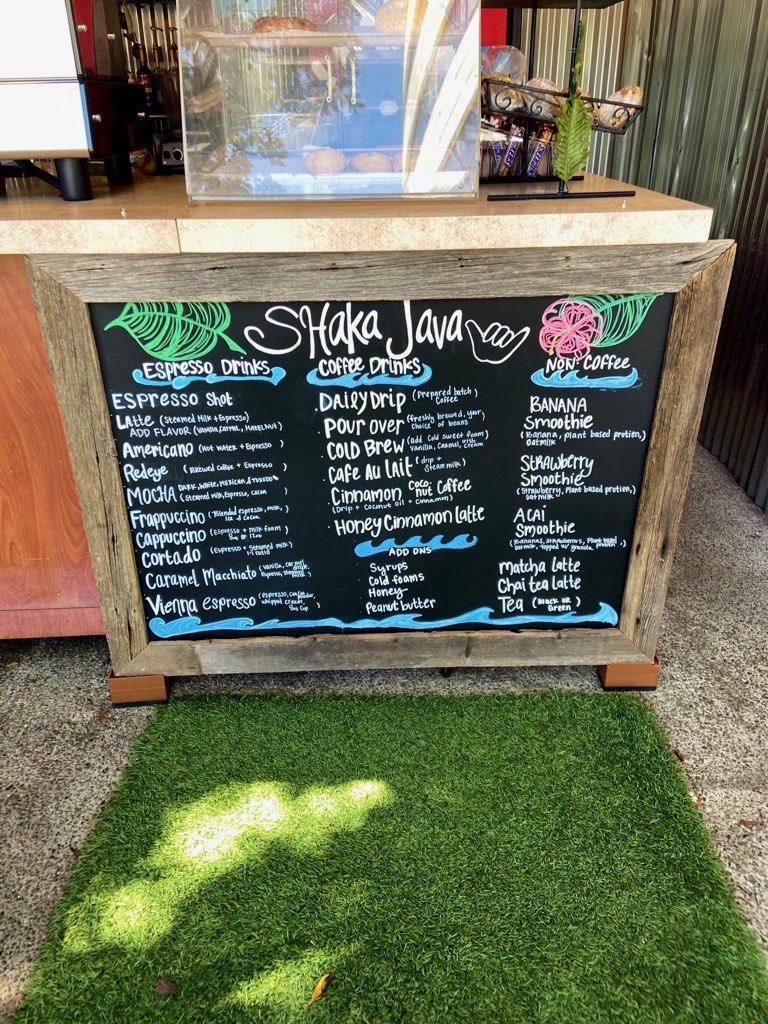 SHaka Java
Espresso Drinks
ESPRESSO Shot
Latte (Steamed Milk + Espresso)
ADD FLAVOR (Vanilla, Carmel, Hazelnut)
Americano (Hot water + Espresso)
Redeye (Brewed Coffee + Espresso)
MOCHA DARK, White, Mexican &
(Steamed Milk, Espresso, Cacao
Frappuccino (Blended espresso, milk,
ice &
Cappuccino (Espresso + Milk Foam)
8oz or 12oz
CORTADO (Espresso + Steamed milk)
1:1 ratio
Caramel Macchiato (Vanilla,
Vienna espresso (espresso,
whipped cream,
8oz Cup
Coffee Drinks
Daily Drip (Prepared batch
Coffee)
Pour over (freshly brewed, your
choice of beans)
COLD BREW (add cold sweet foam)
Vanilla, Carmel, Irish
Cream
Cafe Au lait (drip +
Steam milk)
Cinnamon Coconut Coffee
(Drip + Coconut oil + Cinnamon)
Honey Cinnamon latte
ADD ONS
Syrups
Cold foams
Honey
Peanut butter
Non-Coffee
BANANA
Smoothie
(Banana, plant based protien,
Oatmilk
STRAWberry
Smoothie
(Strawberry, Plant based protien,
oatmilk)
ACAI
Smoothie
(Bananas, Strawberries, Plant based
oatmilk, topped w/ granola protein)
Matcha latte
Chai tea latte
Tea (Black OR
Green)